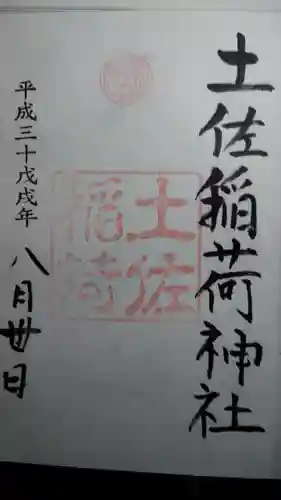 土佐稲荷神社
土佐
稲荷
平成三十戊戌年
八月丗日